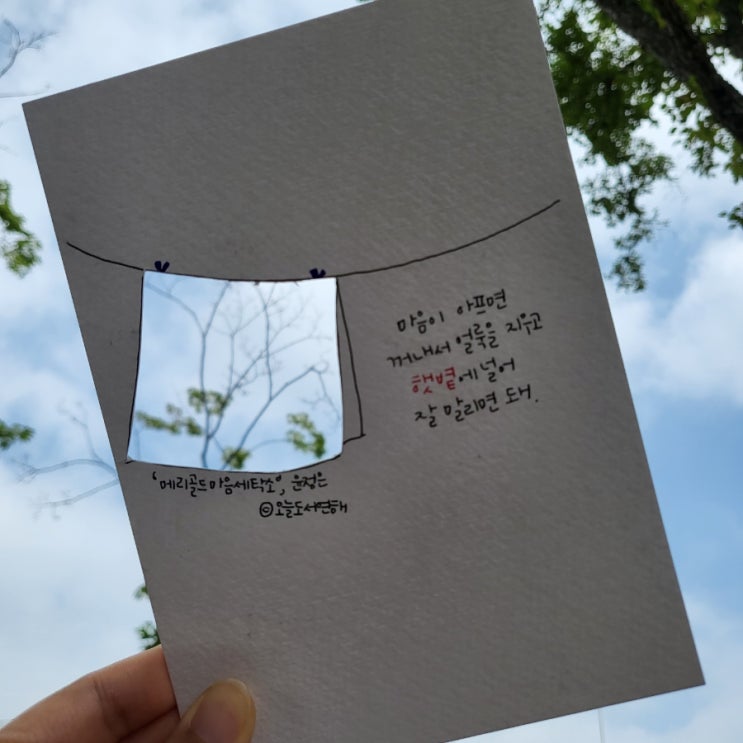 마음이 아프면
꺼내서 얼룩을 지우고
햇볕에 널어
잘 말리면 돼.
'메리골드마음세탁소', 윤정은
©오늘도서연해